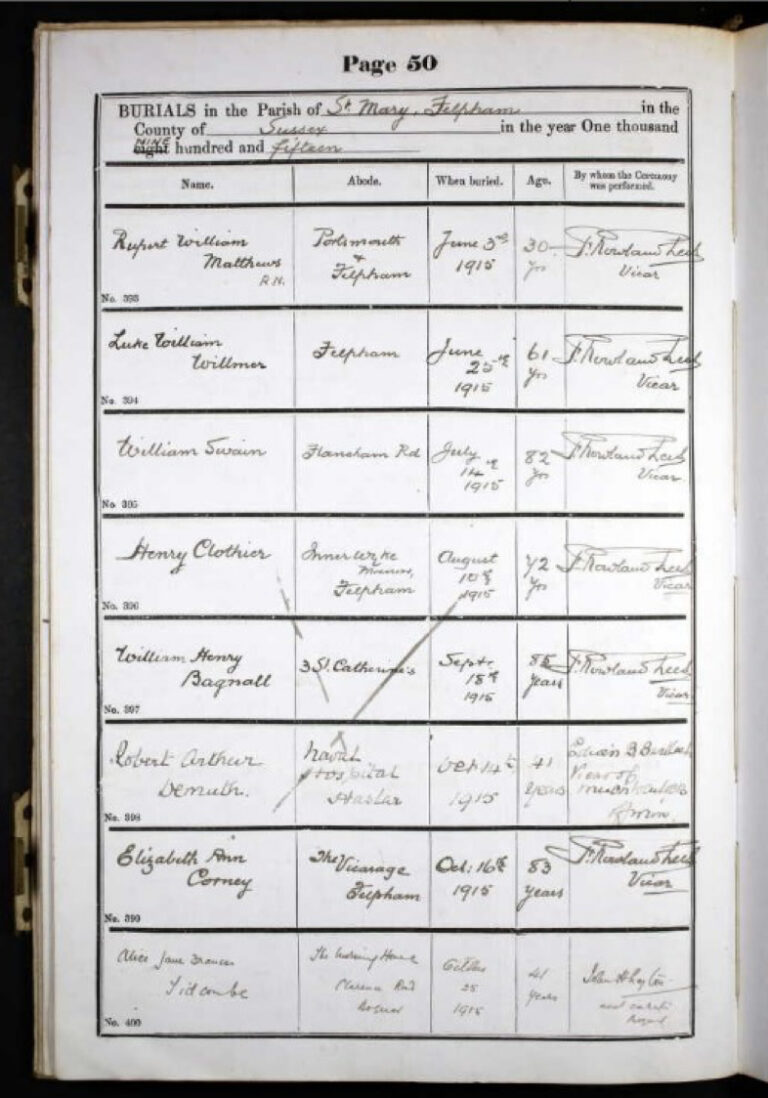 Page 50
BURIALS in the Parish of St Mary, Felpham in the
County of Sussex in the year One thousand
NINE
eight hundred and fifteen
Name. Abode. When buried. Age. By whom the Ceremony was performed.
Rupert William Matthews R.N.
Portsmouth & Felpham
June 3rd 1915
30 yrs
F. Rowland Vicar
No. 393
Luke William Willmer
Felpham
June 25th 1915
61 yrs
F. Rowland Vicar
No. 394
William Swain
Flansham Rd
July 14th 1915
82 yrs
F. Rowland Vicar.
No. 395
Henry Clothier
Felpham
August 10th 1915
72 yrs
F. Rowland Vicar
No. 396
William Henry Bagnall
3 St. Catherine's
Septr. 18th 1915
85 years
F. Rowland Vicar
No. 397
Robert Arthur Demuth.
Naval Hospital Haslar
Oct 14th 1915
41 years
Vicar of
No. 398
Elizabeth Ann Corney
The Vicarage Felpham
Oct: 16th 1915
83 years
F. Rowland Vicar
No. 399
Alice Jane Frances Tidcombe
The Nursing Home Clarence Road Bognor
October 25 1915
41 years
No. 400